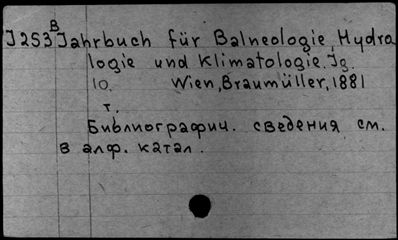 B
J253 Jahrbuch für Balneologie, Hydro
logie und Klimatologie. Jg.
10. Wien, Braumüller, 1881
т.
Библиографич. сведения см.
в алф. катал.